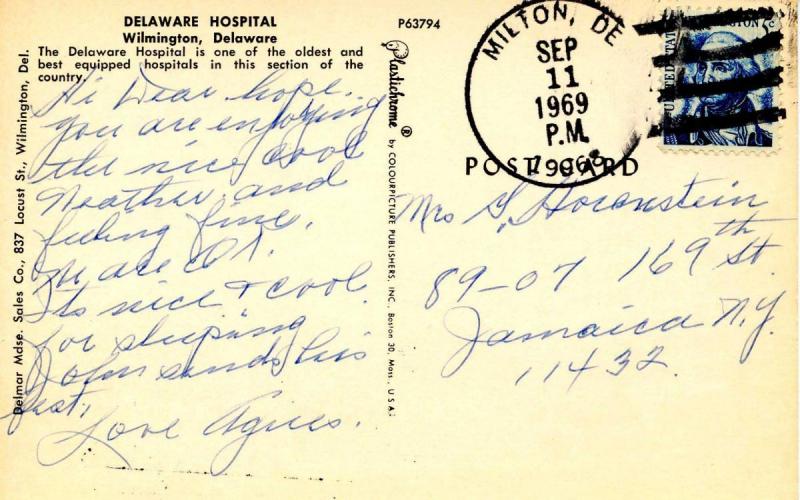 DELAWARE HOSPITAL
Wilmington, Delaware
The Delaware Hospital is one of the oldest and
best equipped hospitals in this section of the
country.
Hi Dear hope
you are enjoying
the nice cool
Weather and
feeling fine.
We are O.K.
Its nice & cool
for sleeping
John sends his
best,
Love Agnes.
Delmar Mdse. Sales Co., 837 Locust St., Wilmington, Del.
P63794
Plastichrome ®
by COLOURPICTURE PUBLISHERS, INC., Boston 30, Mass., U.S.A.
MILTON, DE
SEP
11
1969
P.M.
19968
POST CARD
UNITED STATES
Mrs S. Horenstein
89-07 169th St.
Jamaica N.Y.
11432.